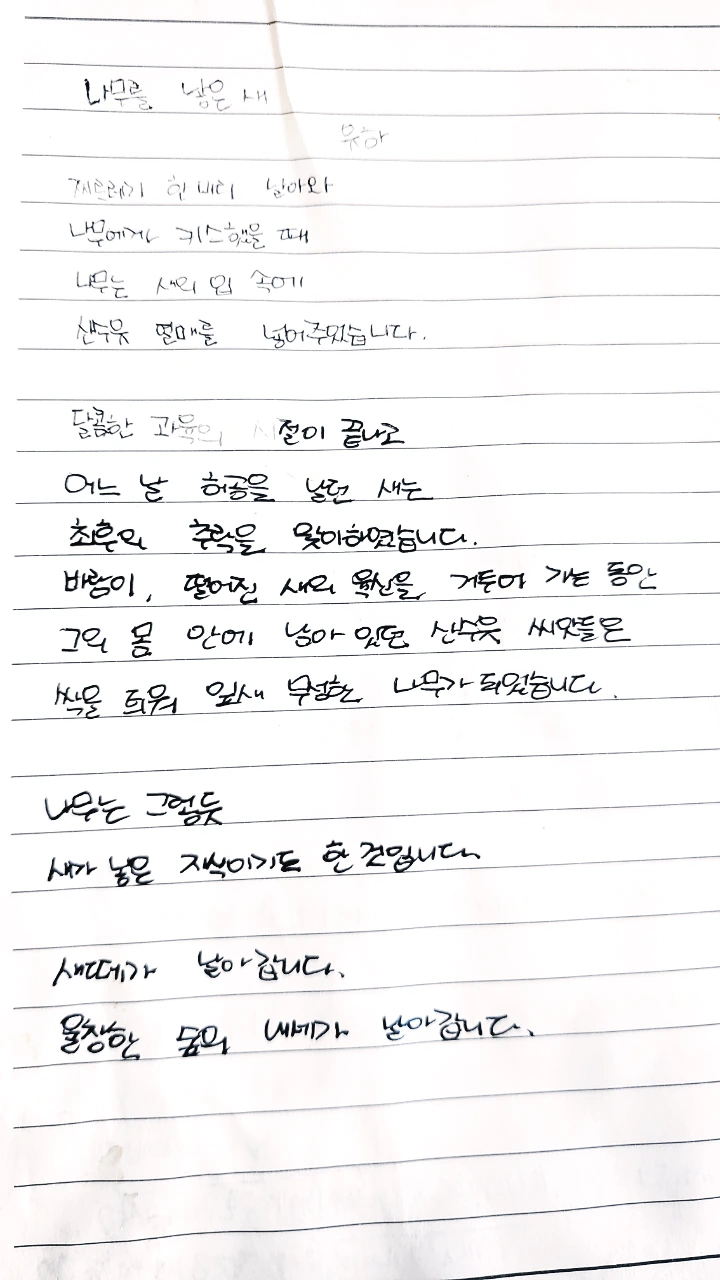 나무를 낳은 새
유하
찌르레기 한 마리 날아와
나무에게 키스했을 때
나무는 새의 입 속에
산수유 열매를 넣어주었습니다.
달콤한 과육의 시절이 끝나고
어느 날 허공을 날던 새는
최후의 추락을 맞이하였습니다.
바람이, 떨어진 새의 육신을 거두어 가는 동안
그의 몸 안에 남아 있던 산수유 씨앗들은
싹을 틔워 잎새 무성한 나무가 되었습니다.
나무는 그렇듯
새가 낳은 자식이기도 한 것입니다
새떼가 날아갑니다.
울창한 숲의 내세가 날아갑니다.